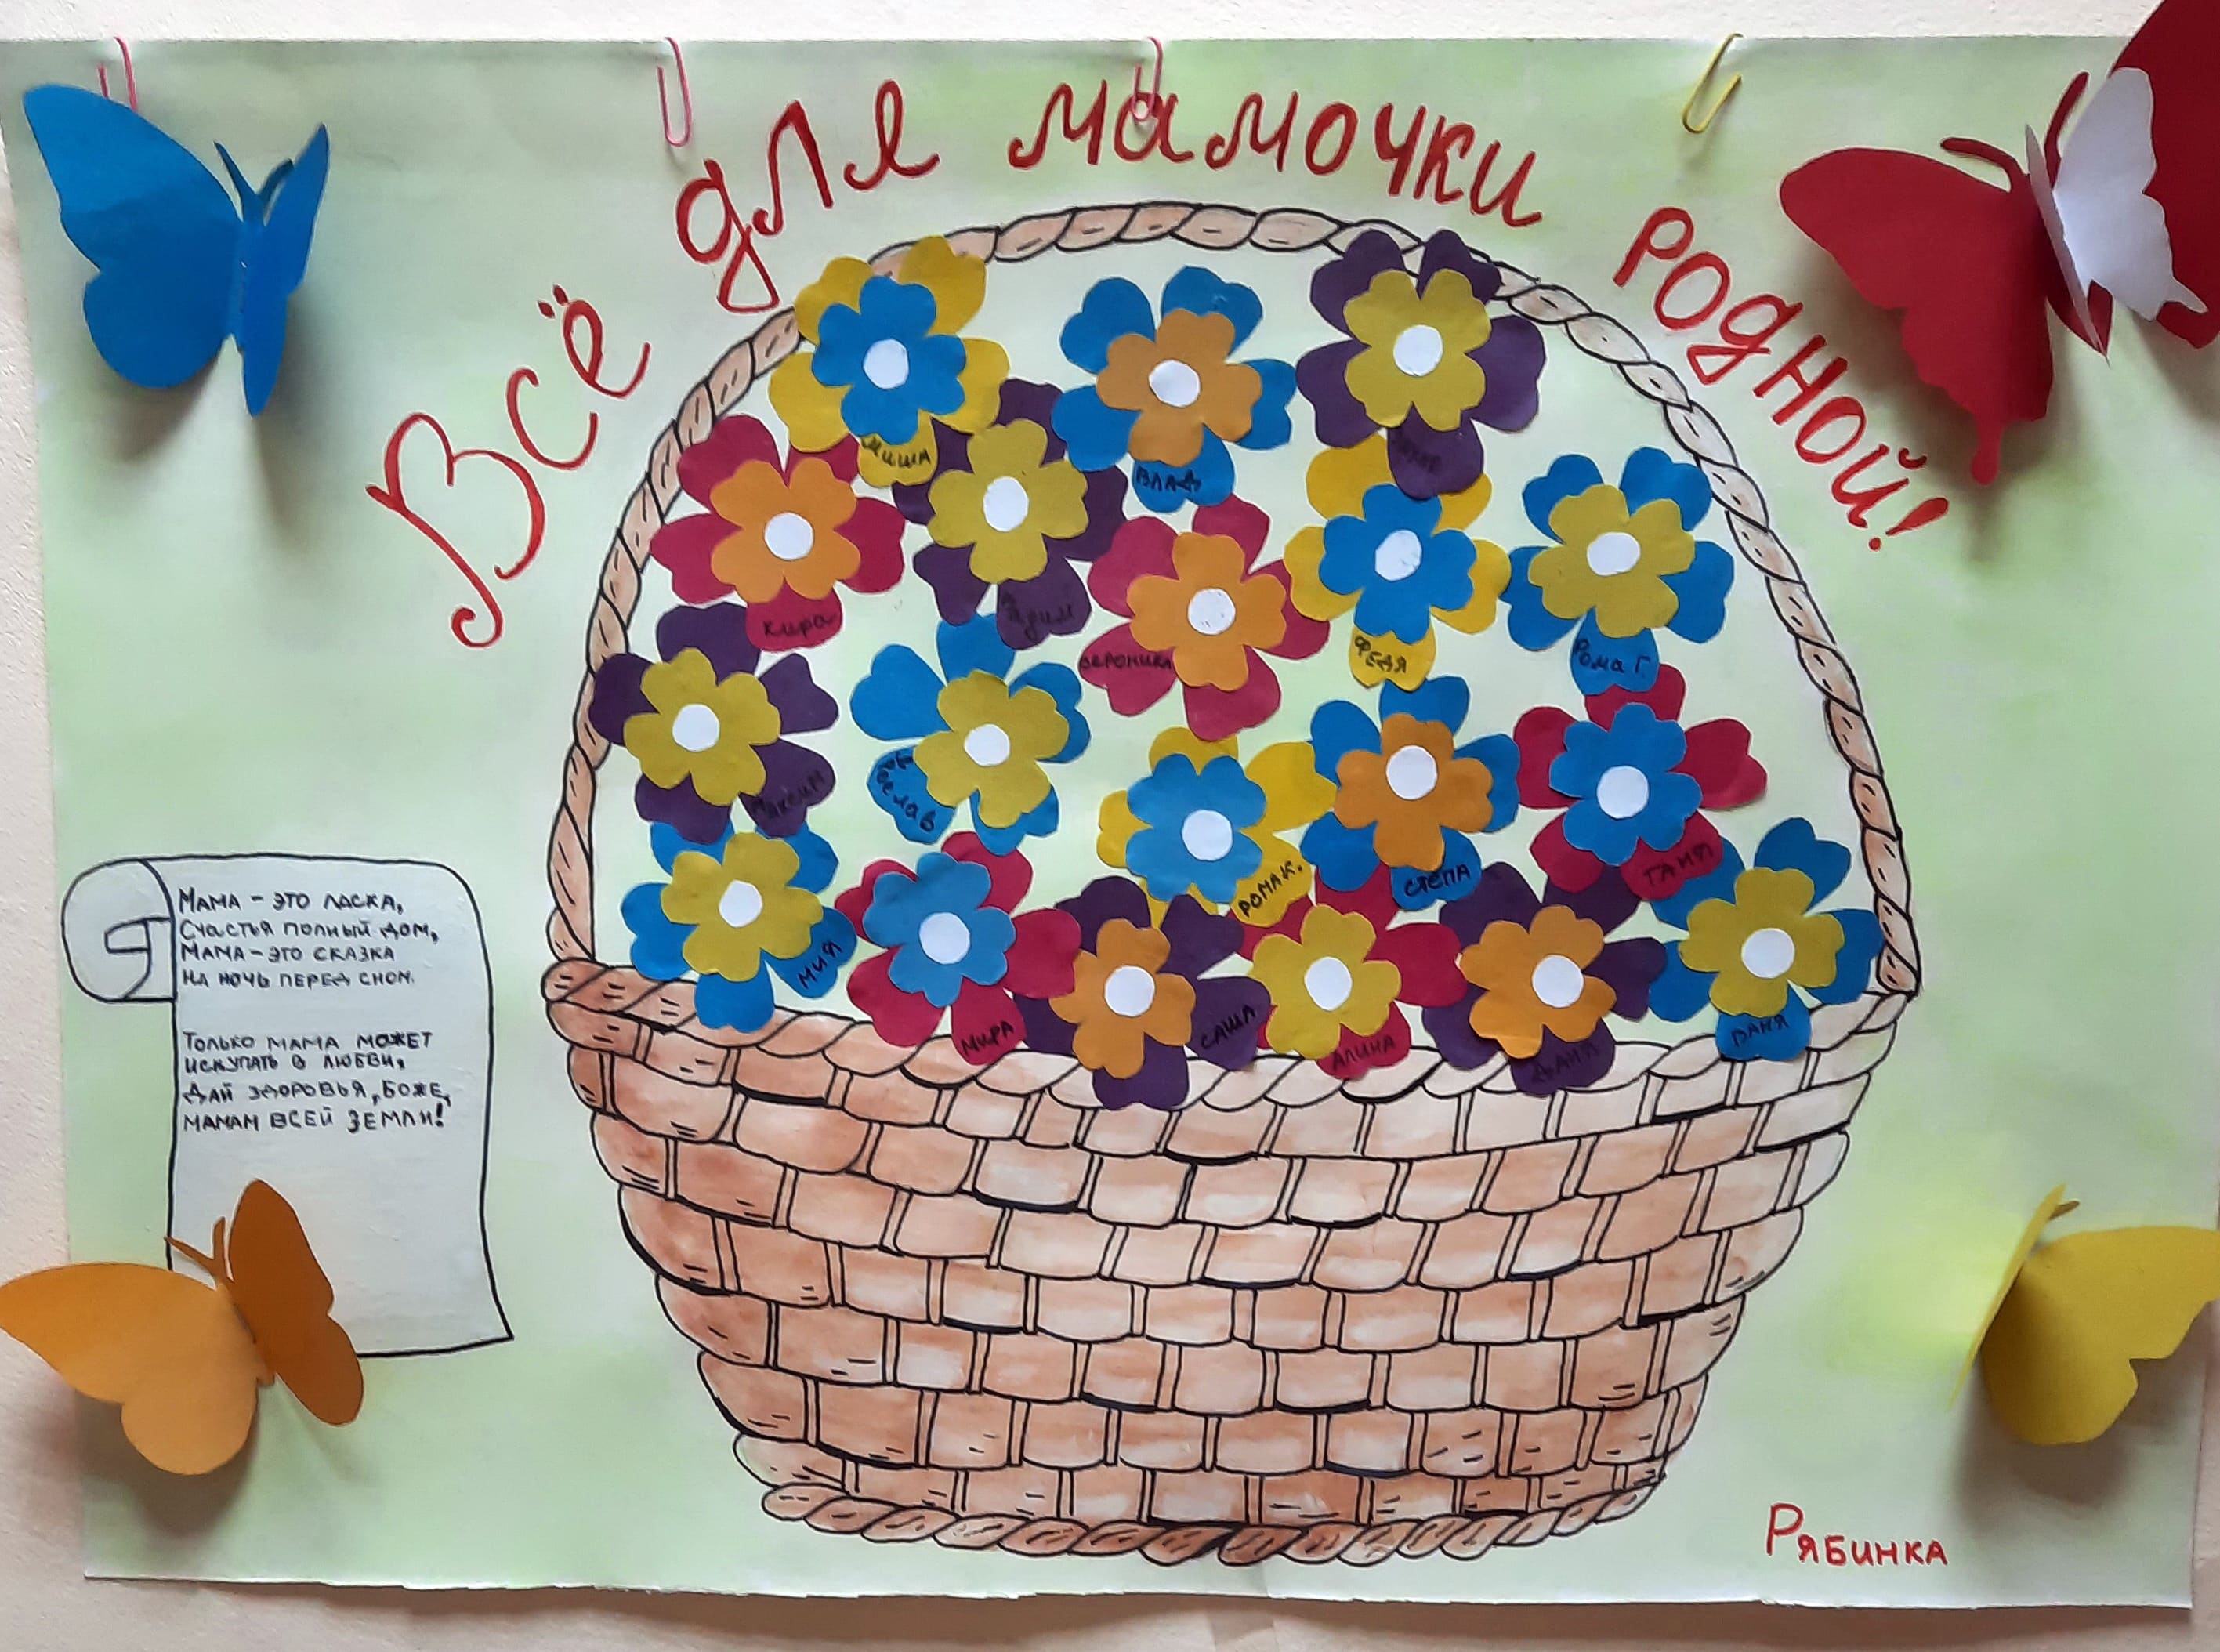 Всё для мамочки родной!
Миша
Влад
Кира
Вероника
Федя
Рома Г.
Максим
Мия
Мира
Рома К.
Стёпа
Таня
Саша
Алина
Ваня
Мама - это ласка,
Счастья полный дом,
Мама - это сказка
На ночь перед сном.
Только мама может
искупать в любви,
Дай здоровья, Боже,
мамам всей земли!
Рябинка